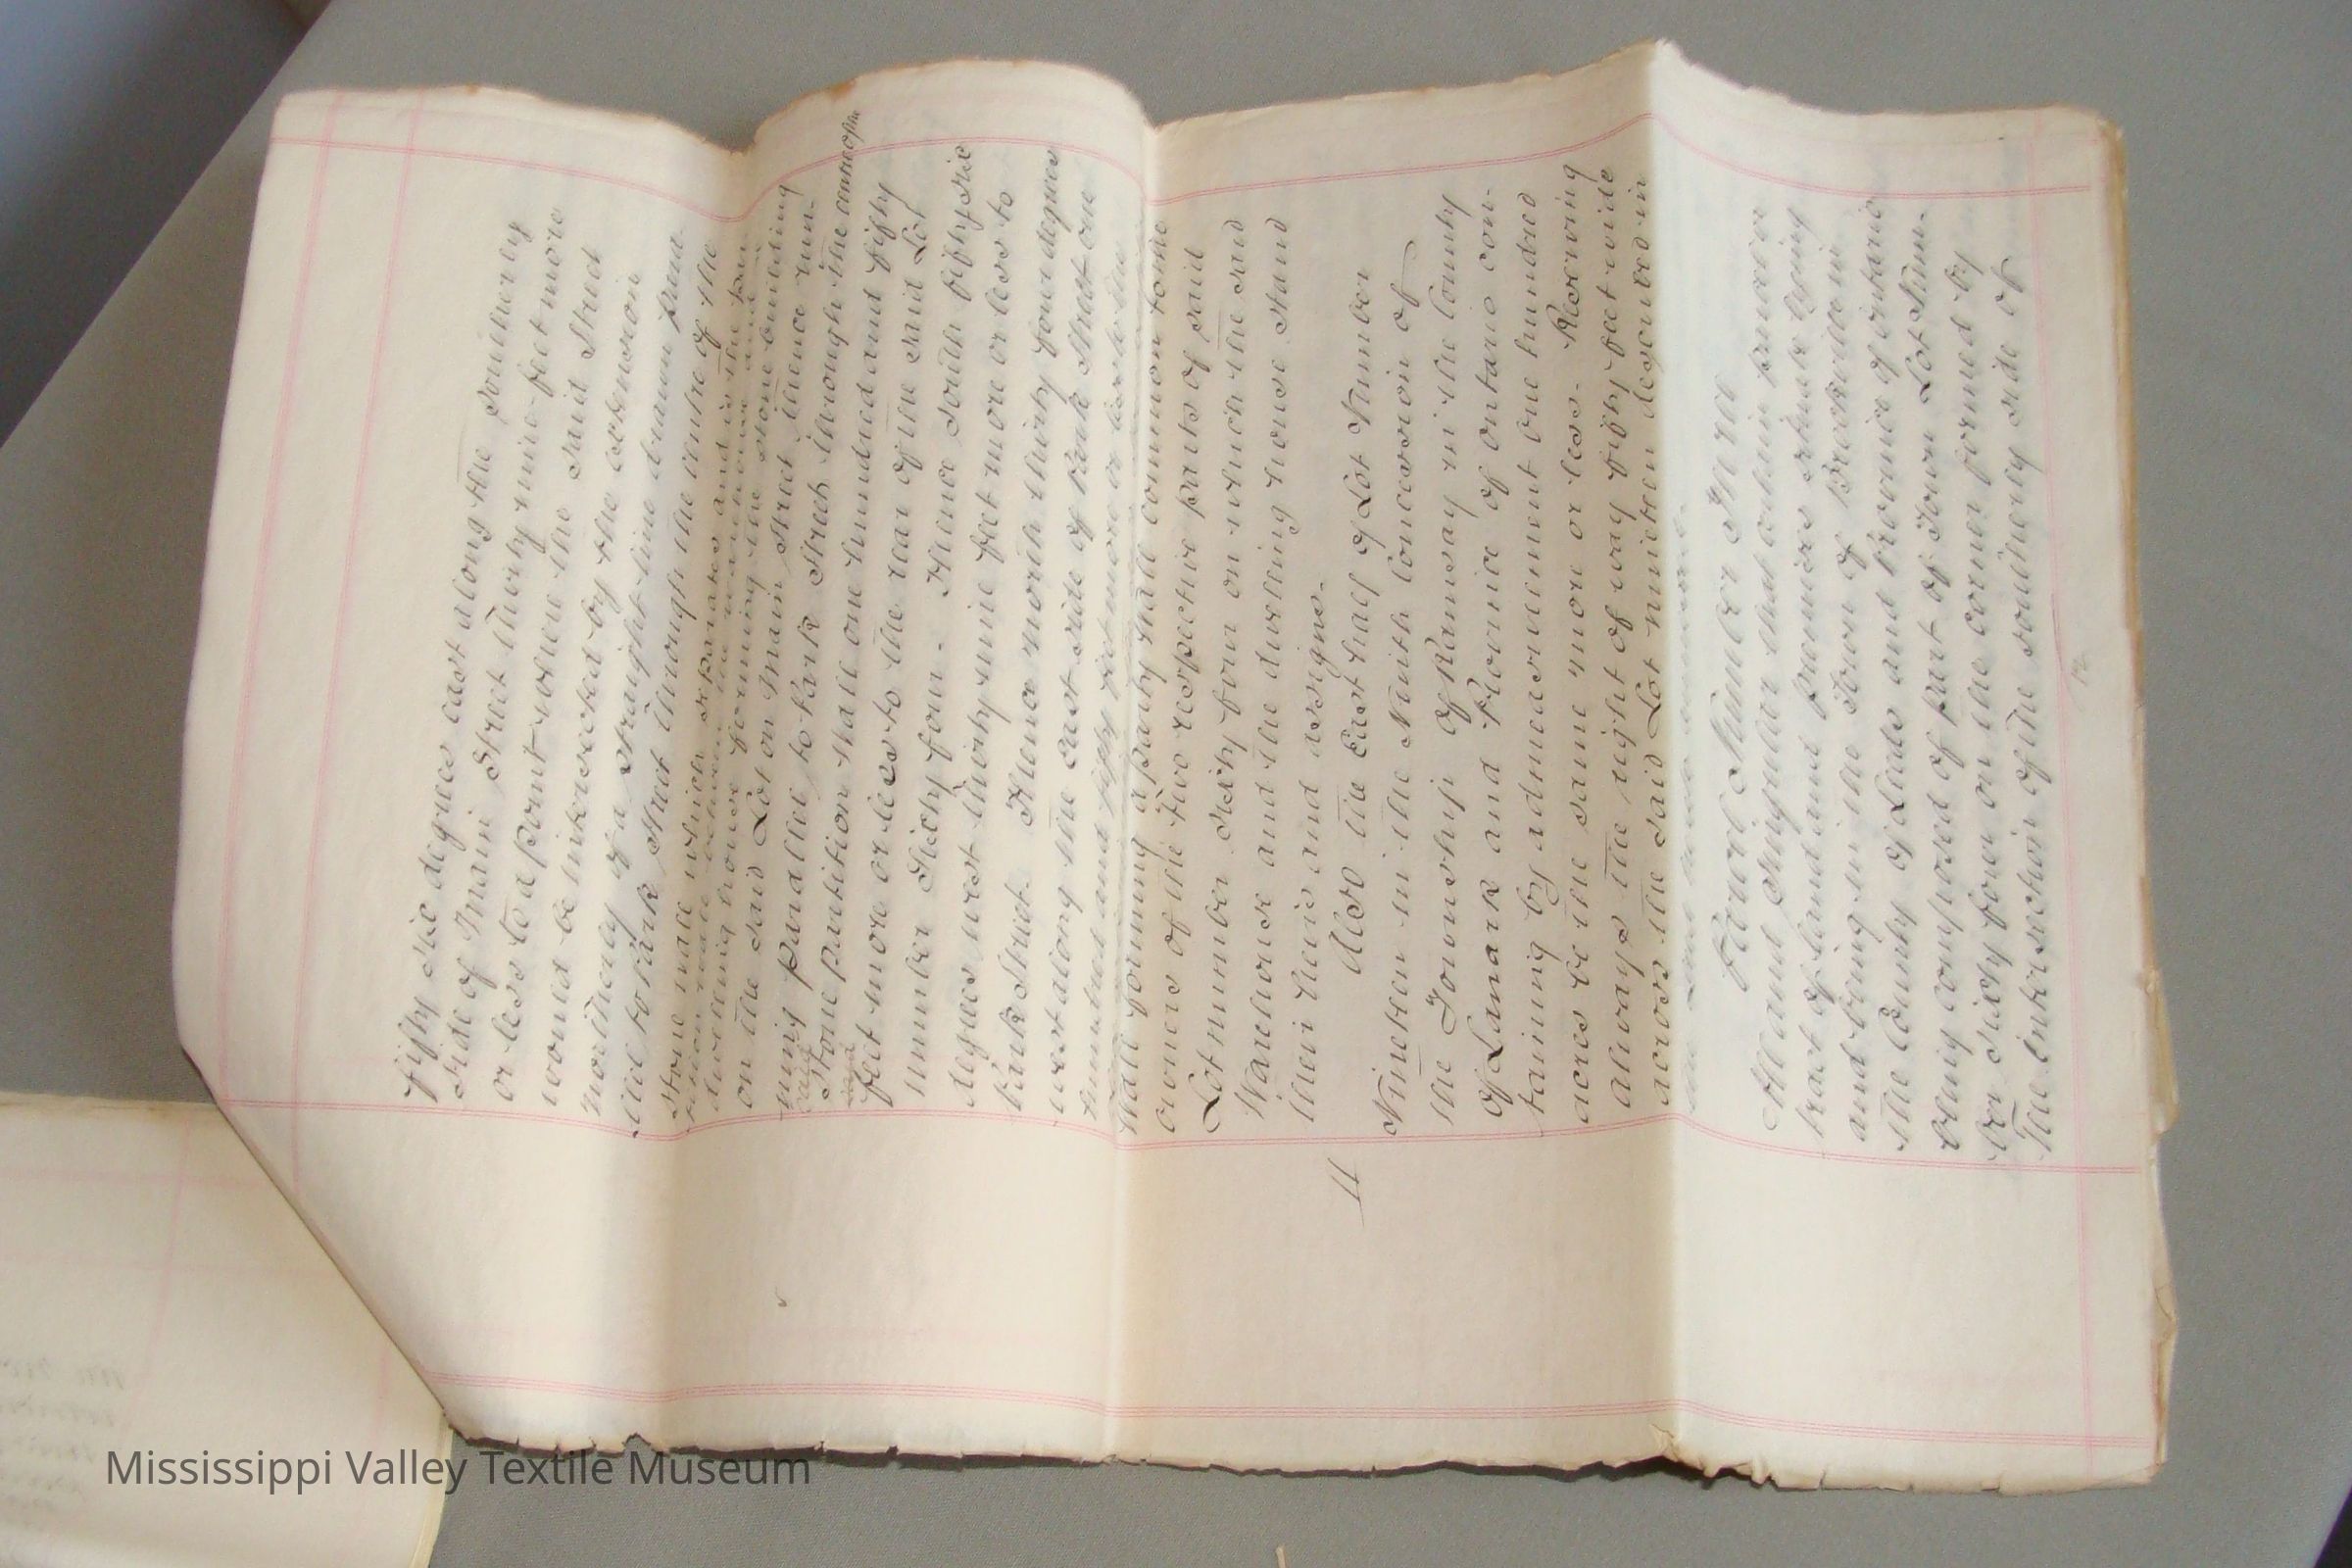 fifty six degrees east along the southerly
side of Main Street thirty nine feet more
or less to a point where the said Street
would be intersected by the extension
northerly of a straight line drawn paral-
lel to Park Street through the centre of the
stone wall which separates and is the par-
dwelling house forming the stone building
on the said Lot on Main Street thence run-
ning parallel to Park Street through the centre of the
said
stone partition wall one hundred and fifty
feet more or less to the rear of the said Lot
number Sixty four. Thence South fifty six
degrees west thirty nine feet more or less to
Park Street. Thence north thirty four degrees
west along the east side of Park Street one
hundred and fifty feet more or less to the
Wall forming a party wall common to the
owners of the two respective parts of said
Lot number Sixty four on which the said
Warehouse and the dwelling house stand
their heirs and assigns.
Also the East half of Lot Number
Nineteen in the Ninth Concession of
the Township of Ramsay in the County
of Lanark and Province of Ontario con-
taining by admeasurement One hundred
acres be the same more or less. Reserving
always the right of way fifty feet wide
across the said Lot nineteen described in
11
Parcel Number Third
All and Singular that certain parcel or
tract of land and premises situate lying
and being in the Town of Brockville in
the County of Leeds and Province of Ontario
being composed of part of Town Lot Num-
ber Sixty four on the corner formed by
The intersection of the southerly side of
Mississippi Valley Textile Museum